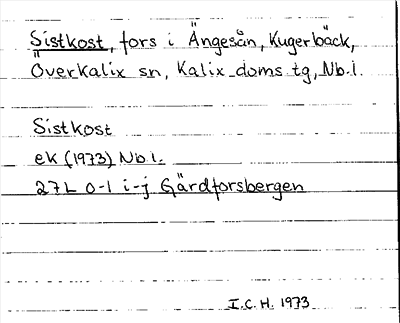 Sistkost, fors i Ängesån, Kugerbäck,
Överkalix sn, Kalix doms. tg, Nb.l.
Sistkost
ek (1973) Nb.l.
27L 0-1 i-j Gärdforsbergen
I.C.H. 1973